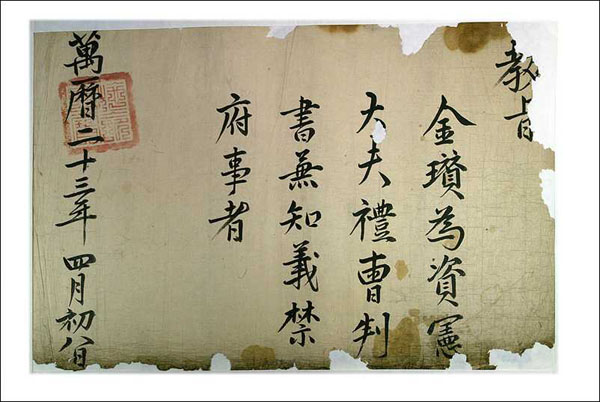 教旨
金瓚為資憲
大夫禮曹判
書兼知義禁
府事者
萬曆二十三年四月初八日